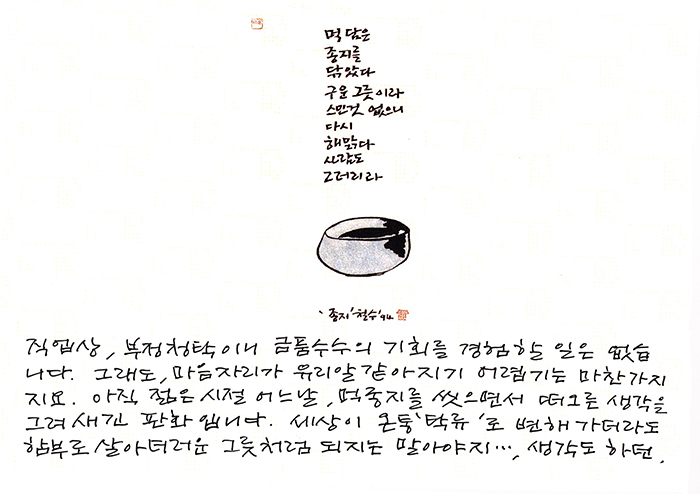 먹 담은
종지를
닦았다
구운 그릇이라
스민것 없으니
다시
해맑다
사람도
그러리라
'종지' 철수 '94
직업상, 부정청탁이나 금품수수의 기회를 경험할 일은 없습
니다. 그래도, 마음자리가 유리알 같아지기 어렵기는 마찬가지
지요. 아직 젊은 시절 어느날, 먹종지를 씻으면서 떠오른 생각을
그려 새긴 판화입니다. 세상이 온통 '탁류'로 변해 가더라도
함부로 살아 더러운 그릇처럼 되지는 말아야지…, 생각도 하던.